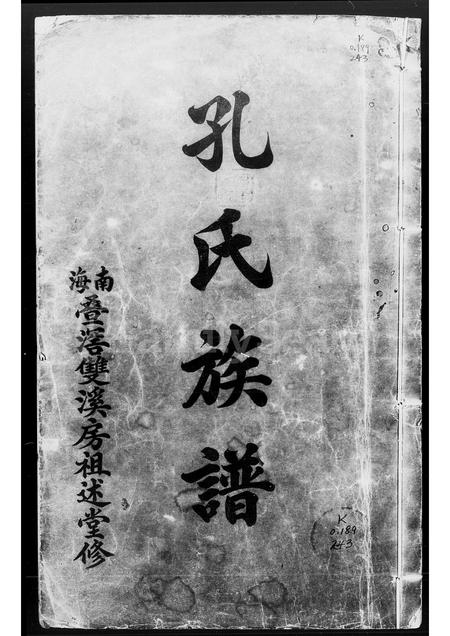 K
0.189
243
孔氏族譜
南海
疊滘雙溪房祖述堂修
K
0.189
243